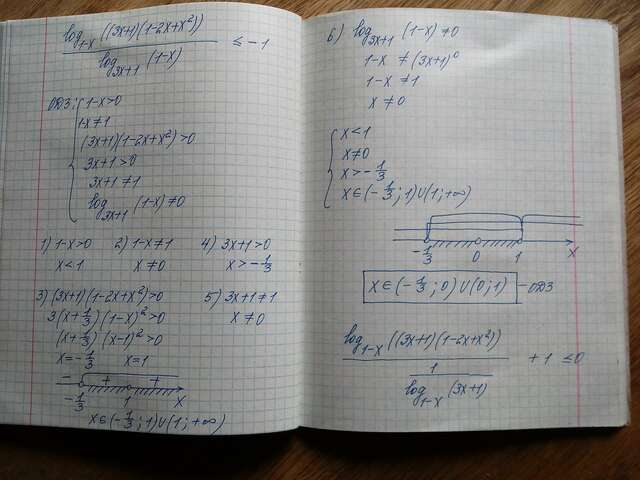 log_{1-x} ((3x+1)(1-2x+x²)) / log_{3x+1} (1-x) ≤ -1
ОДЗ: { 1-x>0
1-x≠1
(3x+1)(1-2x+x²)>0
3x+1>0
3x+1≠1
log_{3x+1} (1-x)≠0
1) 1-x>0 2) 1-x≠1 4) 3x+1>0
x<1 x≠0 x>-1/3
3) (3x+1)(1-2x+x²)>0 5) 3x+1≠1
3(x+1/3)(1-x)²>0 x≠0
(x+1/3)(x-1)²>0
x=-1/3 x=1
- + +
-1/3 1 x
x∈(-1/3;1)∪(1;+∞)
6) log_{3x+1} (1-x)≠0
1-x≠(3x+1)⁰
1-x≠1
x≠0
{ x<1
x≠0
x>-1/3
x∈(-1/3;1)∪(1;+∞)
-1/3 0 1 x
x∈(-1/3;0)∪(0;1) -ОДЗ
log_{1-x} ((3x+1)(1-2x+x²)) / (1 / log_{1-x} (3x+1)) +1 ≤0